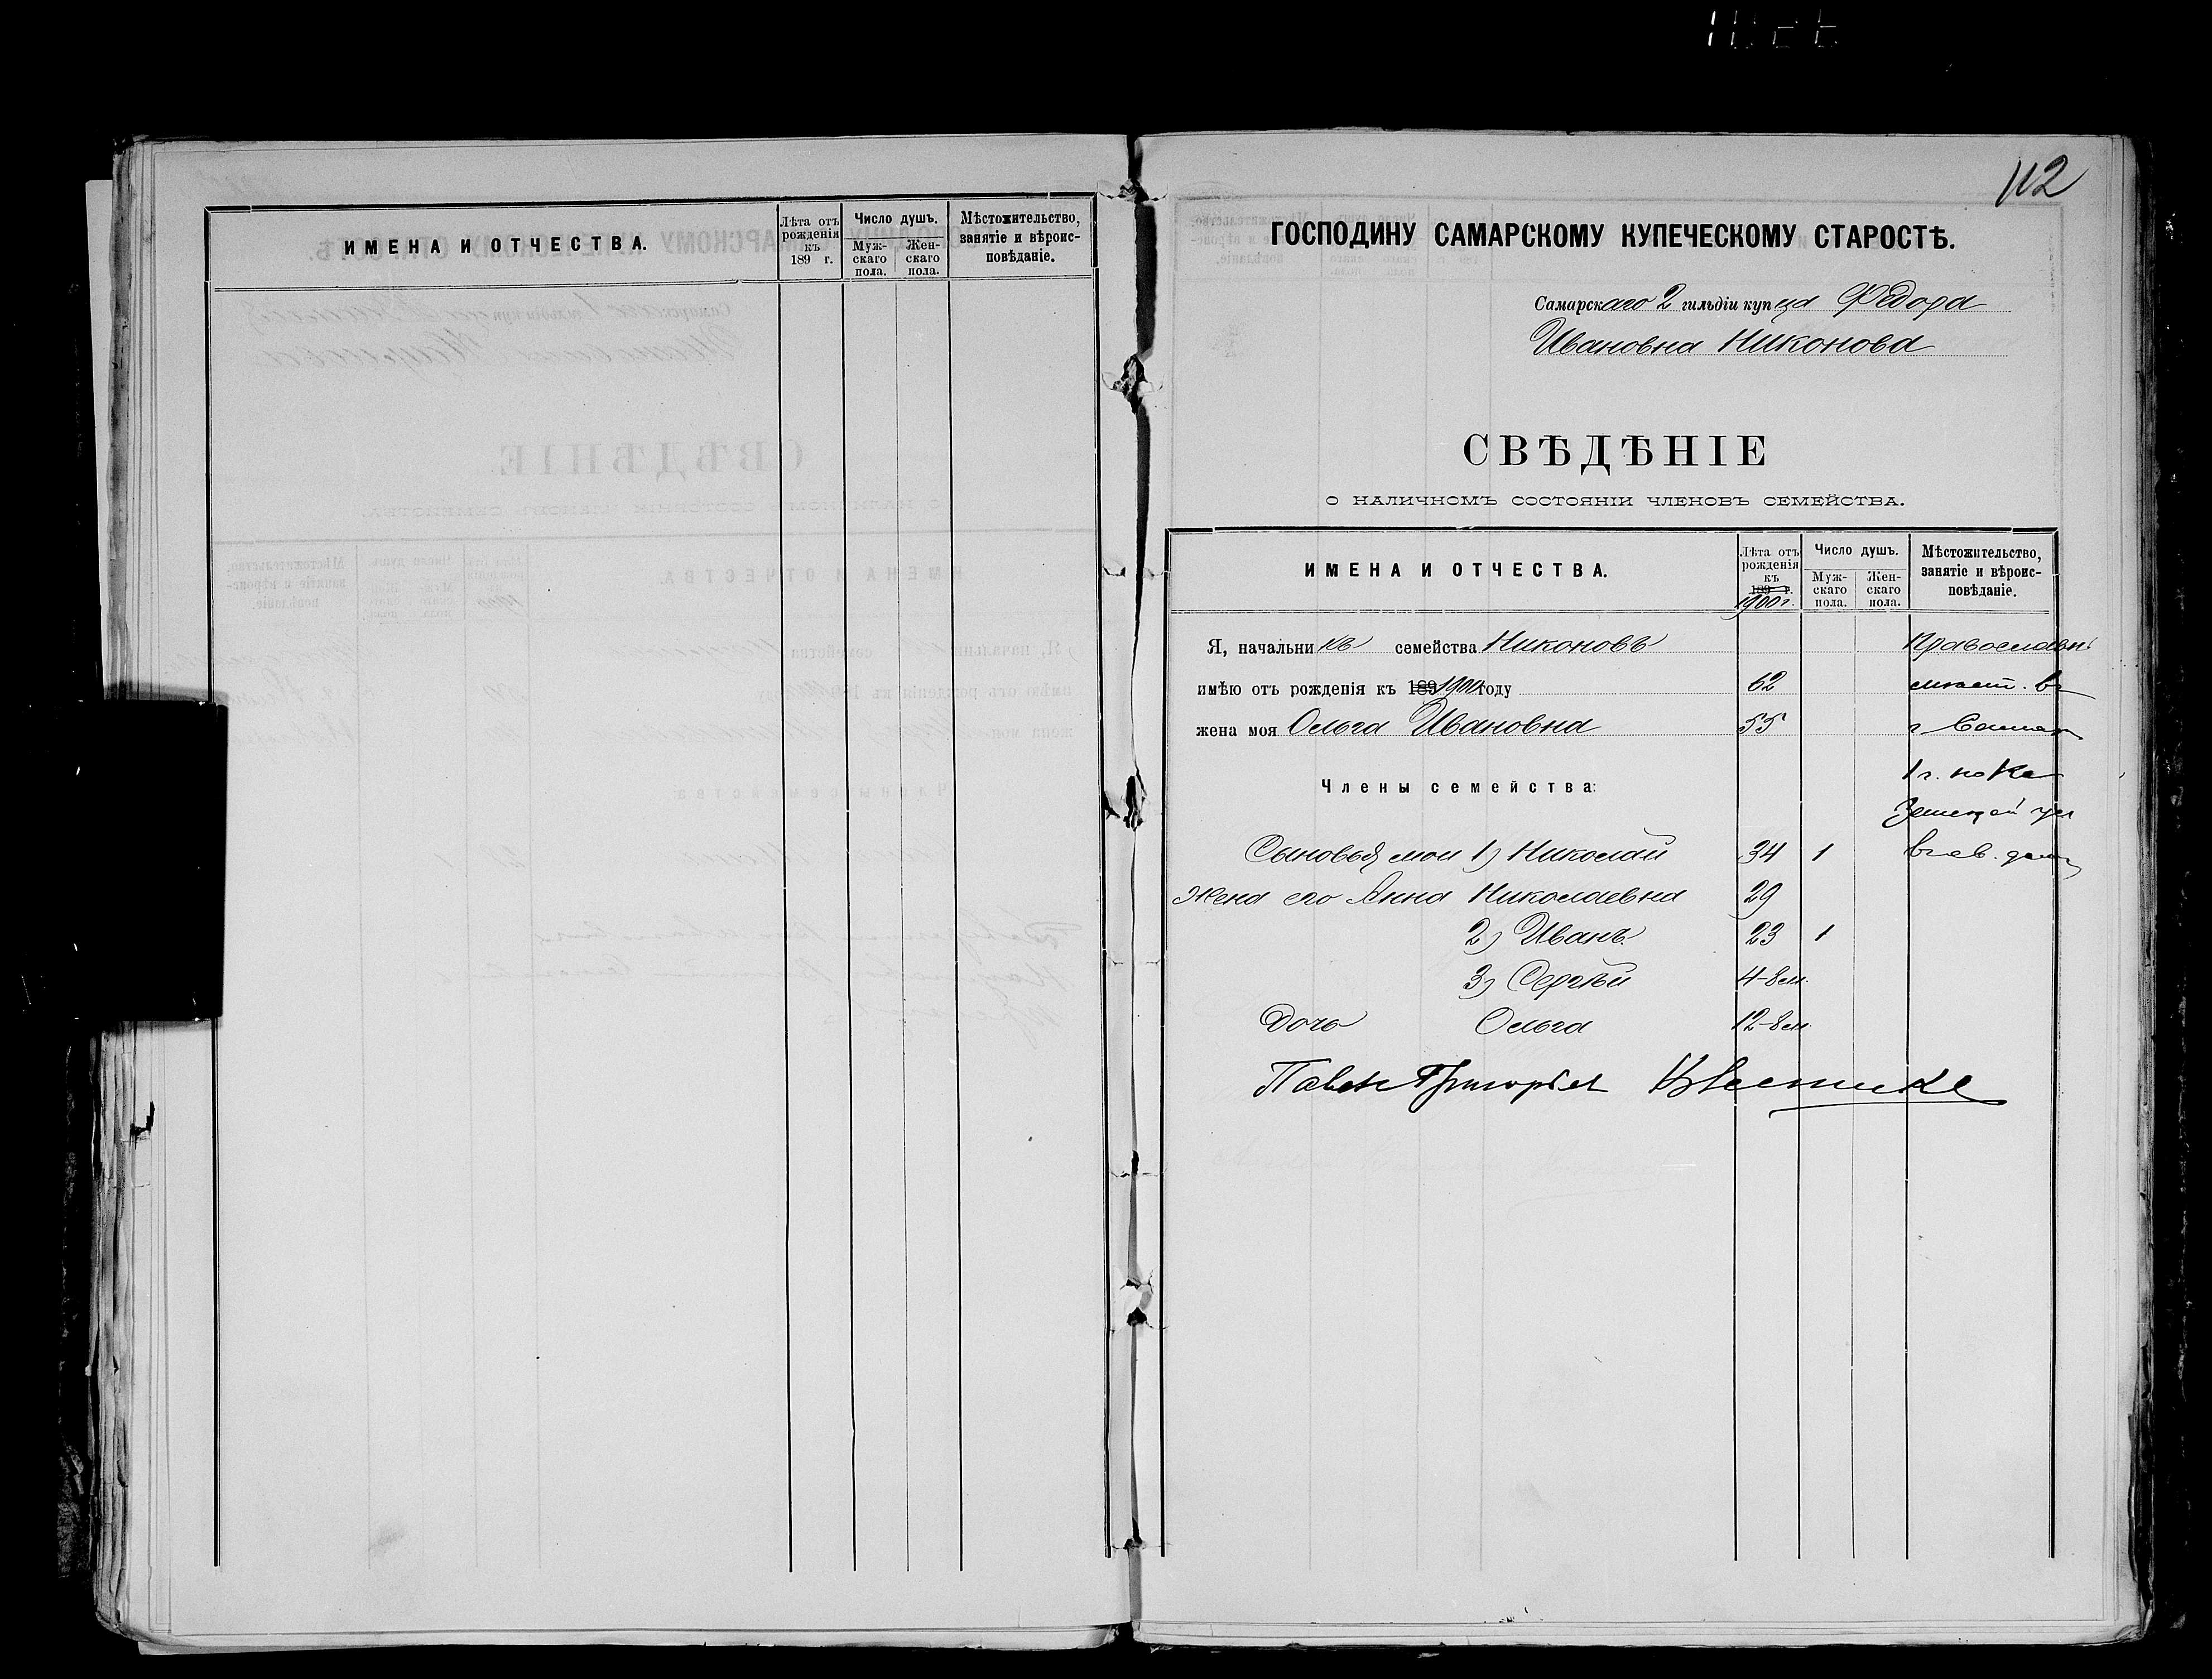 ИМЕНА И ОТЧЕСТВА.
Лѣта отъ рожденія къ 189 г.
Число душъ.
Муж-скаго пола.
Жен-скаго пола.
Мѣстожительство, занятіе и вѣроис-повѣданіе.
112
ГОСПОДИНУ САМАРСКОМУ КУПЕЧЕСКОМУ СТАРОСТѢ.
Самарскаго 2 гильдіи купца Федора
Ивановна Никонова
СВѢДѢНІЕ
О НАЛИЧНОМЪ СОСТОЯНІИ ЧЛЕНОВЪ СЕМЕЙСТВА.
ИМЕНА И ОТЧЕСТВА.
Лѣта отъ рожденія къ 189 г. 1900 г.
Число душъ.
Муж-скаго пола.
Жен-скаго пола.
Мѣстожительство, занятіе и вѣроис-повѣданіе.
Я, начальникъ семейства Никоновъ
имѣю отъ рожденія къ 189 1900 году 62
жена моя Ольга Ивановна 55
Члены семейства:
Сыновья мои 1) Николай 34 1
Жена его Анна Николаевна 29
2) Иванъ 23 1
3) Сергѣй 4-8 м.
Дочь Ольга 12-8 м.
Православн
г
1
въ
Павелъ Григорьев